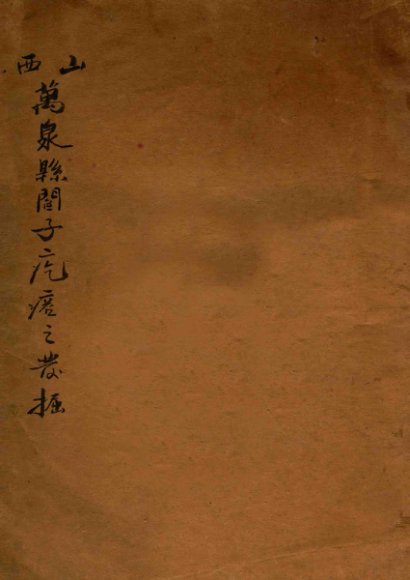 山西
萬泉縣閻子疙瘩之發掘